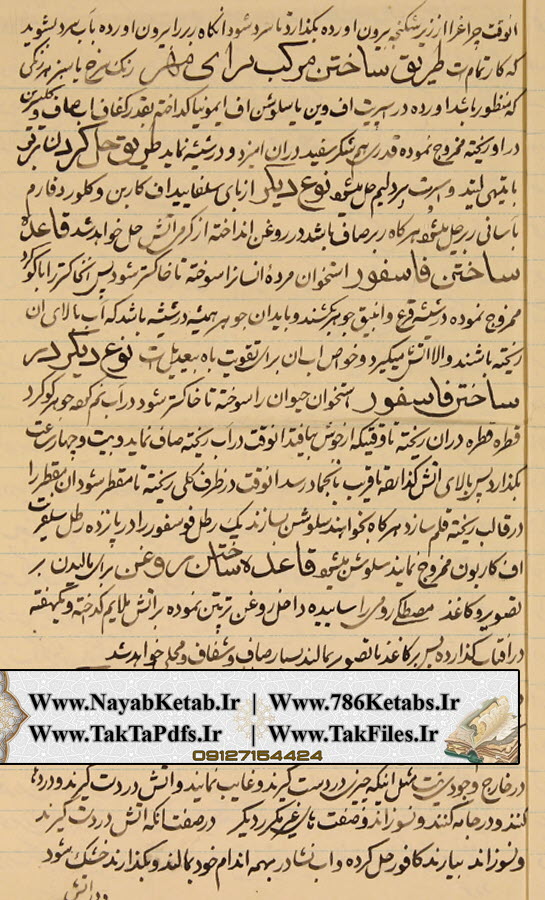 انوقت چراغرا از زیر شکنجه بیرون اورده بگذارد تا سرد شود انکاه زبر را بیرون اورده باب سرد بشوید
که کار تمام است طریق ساختن مرکب برای مهر رنک سرخ یا سبز هر رنکی
که منظور باشد اورده در اسپریت اف وین یا سلوشن اف ایمونیا کداخته بقدر کفاف اب صاف و
در او ریخته ممزوج نموده قدری هم شکر سفید دران امیزد و در شیشه نماید طریق حل کردن
نوع دیکر از بای سلفاید اف کاربن و کلوردفارم
باسانی ربر حل میشود هر کاه ربر صاف باشد در روغن انداخته از کرمی اتش حل خواهد شد قاعده
ساختن فاسفور استخوان مرده انسانرا سوخته تا خاکستر شود پس انخاکستر را با کوکرد
ممزوج نموده در شیشه قرع و انبیق جوهر بکشند و باید ان جوهر همیشه در شیشه باشد که آب بالای ان
ریخته باشند والا اتش میکیرد و خواص اب ان برای تقویت باه بیعدیل است نوع دیکر در
ساختن فاسفور استخوان حیوان را سوخته تا خاکستر شود در آب نم کرده جوهر کوکرد
قطره قطره دران ریخته تا وقتیکه از جوش بیافتد انوقت در آب ریخته صاف نماید و بیست و چهار ساعت
بکذارد پس بالای اتش کذاشته تا قریب بانجماد رسد انوقت در ظرف کلی ریخته تا مقطر شود ان مقطر را
در قالب ریخته قلم سازد هر کاه بخواهند سلوشن بسازند یک رطل فوسفور را در پانزده رطل
اف کاربون ممزوج نمایند سلوشن میشود قاعده ساختن روغن برای مالیدن بر
تصویر و کاغذ مصطکی رومی را ساییده داخل روغن تربتین نموده بر اتش ملایم کداخته و یکهفته
در افتاب کذارده پس بر کاغذ یا تصویر بمالند بسیار صاف و شفاف و مجلی خواهد شد
Www.NayabKetab.Ir | Www.786Ketabs.Ir
Www.TakTaPdfs.Ir | Www.TakFiles.Ir
09127154424
در خارج وجودی نیست مثل اینکه چیزی در دست کیرند و غایب نمایند و اتش در دست کیرند و در دهان
کنند و در جامه کنند و نسوزاند و صفت های غیر مکرر دیکر در صفت انکه اتش در دست کیرند
و نسوزاند بیارند کافور حل کرده و اب نشادر بهمه اندام خود بمالند و بکذارند خشک شود
و در اتش